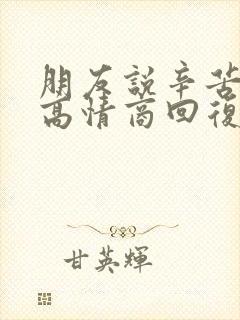 朋友說辛苦
高情商回復
甘英輝